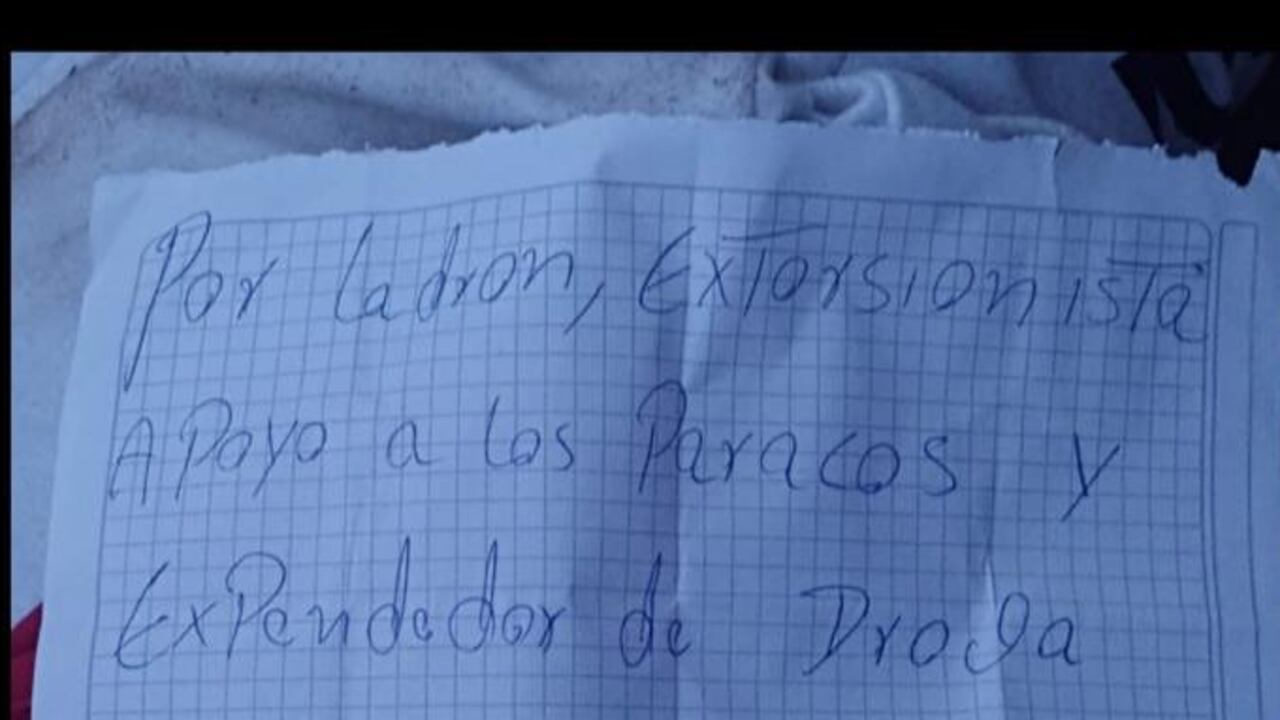 Por ladron, Extorsionista
APoyo a los Paracos y
ExPendedor de Droga